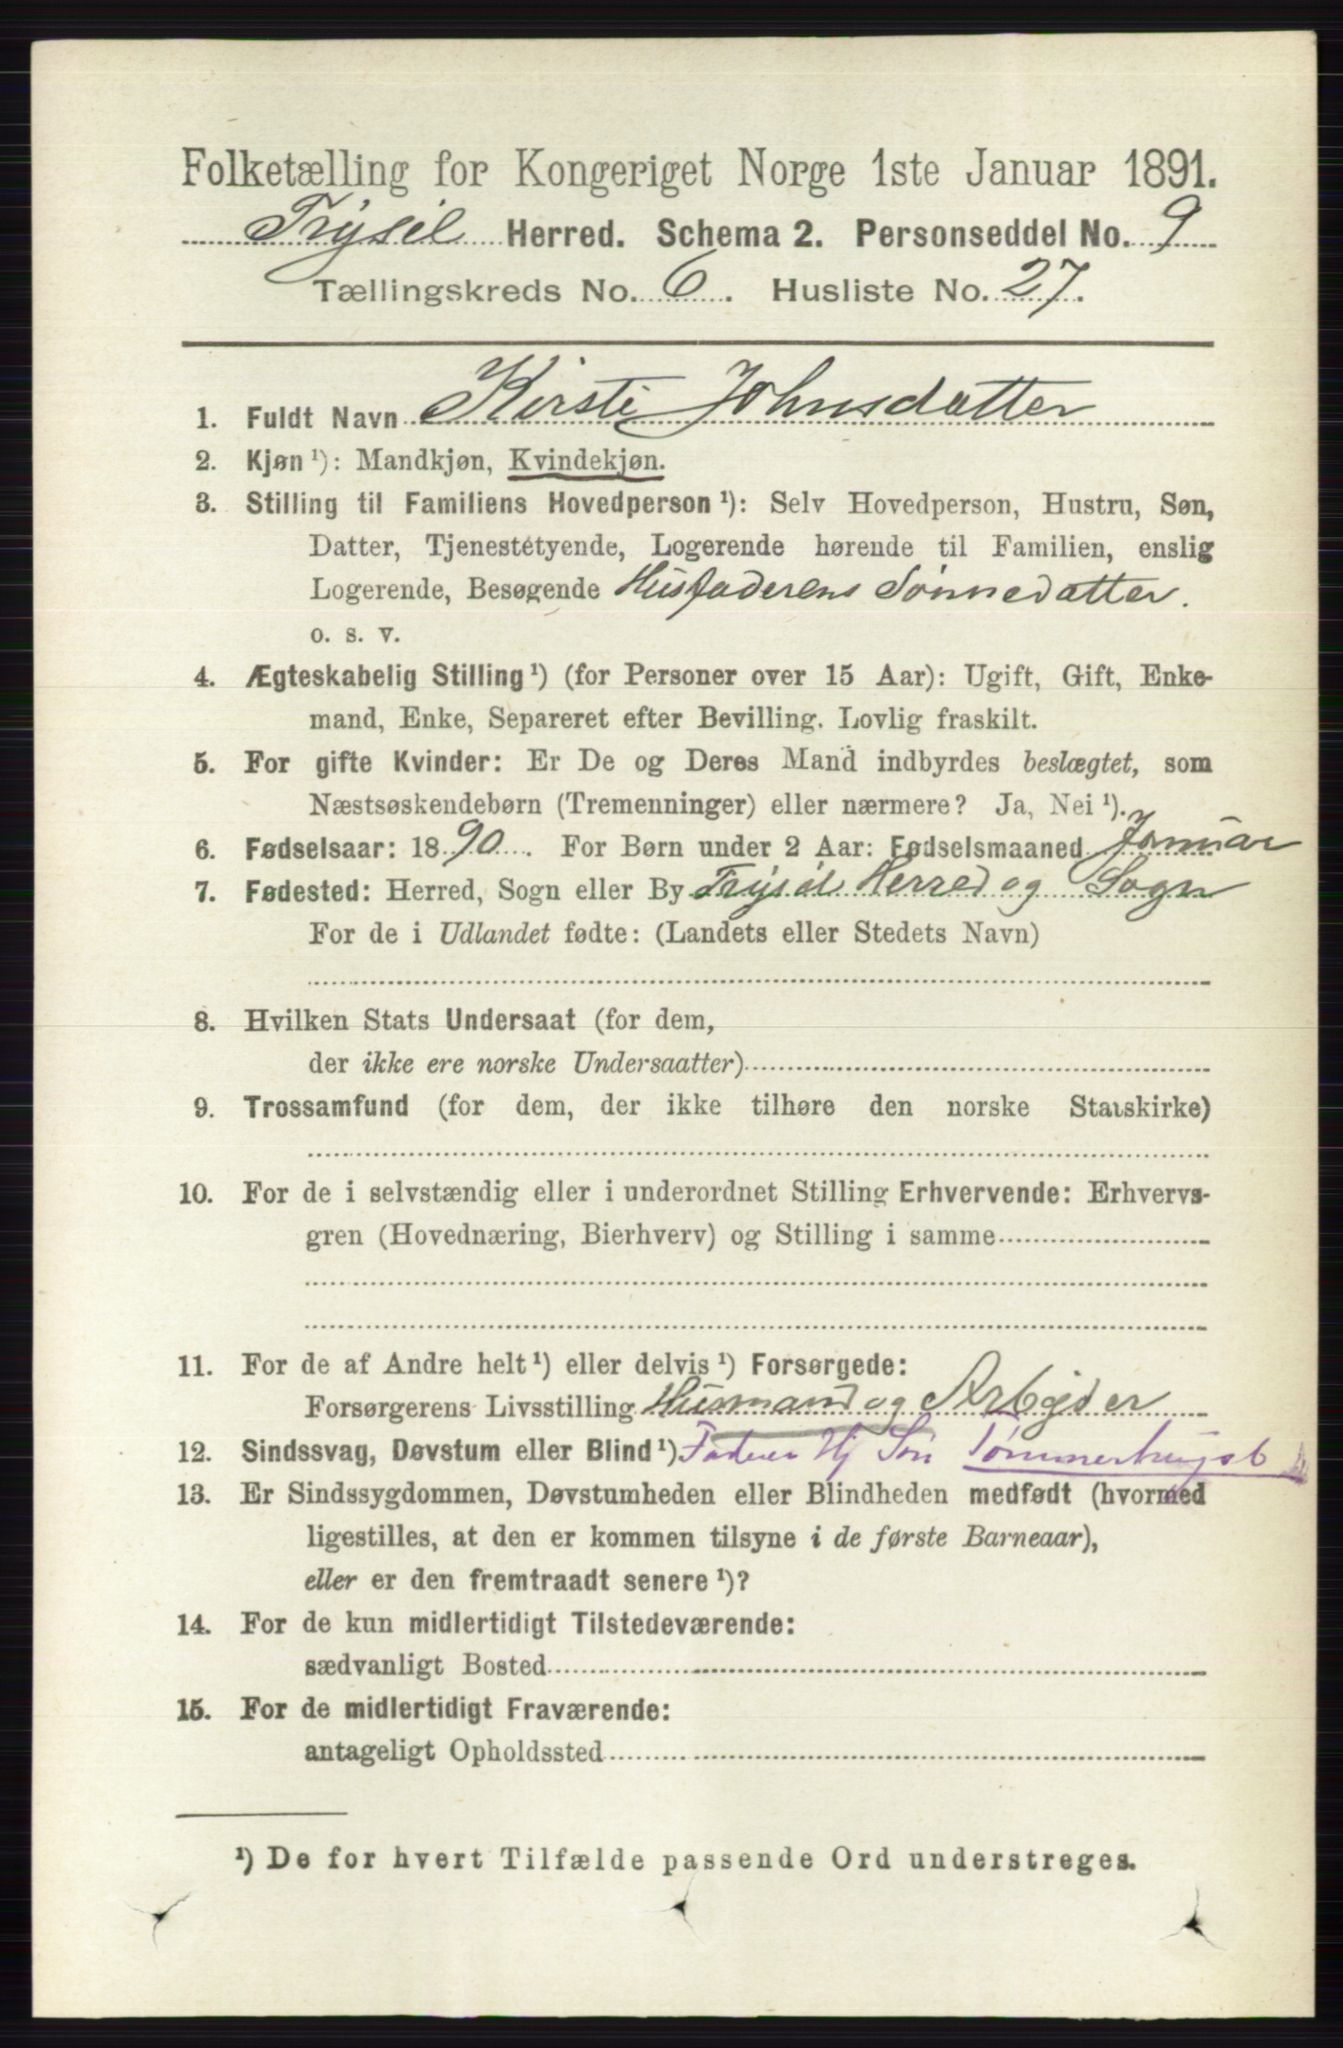 Folketælling for Kongeriget Norge 1ste Januar 1891.
Trysil Herred. Schema 2. Personseddel No. 9
Tællingskreds No. 6. Husliste No. 27.
1. Fuldt Navn Kirsti Johnsdatter
2. Kjøn ¹): Mandkjøn, Kvindekjøn.
3. Stilling til Familiens Hovedperson ¹): Selv Hovedperson, Hustru, Søn,
Datter, Tjenestetyende, Logerende hørende til Familien, enslig
Logerende, Besøgende Husfaderens Sønnedatter.
o. s. v.
4. Ægteskabelig Stilling ¹) (for Personer over 15 Aar): Ugift, Gift, Enke-
mand, Enke, Separeret efter Bevilling. Lovlig fraskilt.
5. For gifte Kvinder: Er De og Deres Mand indbyrdes beslægtet, som
Næstsøskendebørn (Tremenninger) eller nærmere? Ja, Nei ¹).
6. Fødselsaar: 1890. For Børn under 2 Aar: Fødselsmaaned Januar
7. Fødested: Herred, Sogn eller By Trysil Herred og Sogn
For de i Udlandet fødte: (Landets eller Stedets Navn)
8. Hvilken Stats Undersaat (for dem,
der ikke ere norske Undersaatter)
9. Trossamfund (for dem, der ikke tilhøre den norske Statskirke)
10. For de i selvstændig eller i underordnet Stilling Erhvervende: Erhvervs-
gren (Hovednæring, Bierhverv) og Stilling i samme
11. For de af Andre helt ¹) eller delvis ¹) Forsørgede:
Forsørgerens Livsstilling Husmand og Arbejder
12. Sindssvag, Døvstum eller Blind ¹) Faderen Hj Søn
13. Er Sindssygdommen, Døvstumheden eller Blindheden medfødt (hvormed
ligestilles, at den er kommen tilsyne i de første Barneaar),
eller er den fremtraadt senere ¹)?
14. For de kun midlertidigt Tilstedeværende:
sædvanligt Bosted
15. For de midlertidigt Fraværende:
antageligt Opholdssted
¹) De for hvert Tilfælde passende Ord understreges.